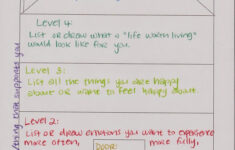 Level 4:
List or draw what a "life worth living"
would look like for you.
Level 3:
List all the things you are happy
about or want to feel happy about.
Level 2:
List or draw emotions you want to experience
more often, more fully,
DOOR:
that supports you